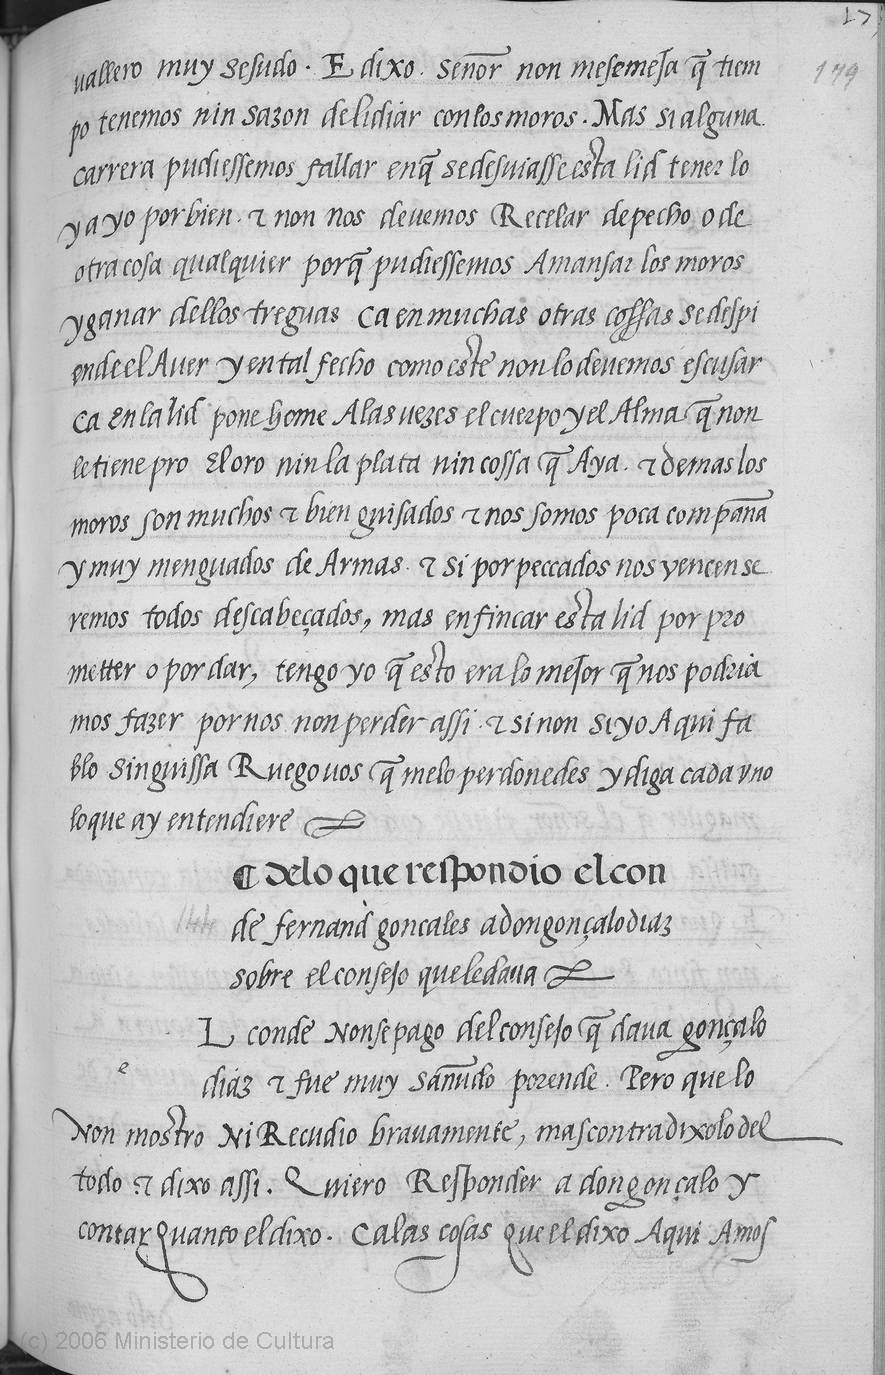 27
179
uallero muy sesudo. E dixo. señor non mesemeja q̃ tiem
po tenemos nin sazon delidiar conlos moros. Mas si alguna
carrera pudiessemos fallar enq̃ sedesuiasse esta lid tener lo
ya yo por bien. τ non nos deuemos Recelar depecho o de
otra cosa qualquier porq̃ pudiessemos Amansar los moros
yganar dellos treguas ca en muchas otras cossas sedespi
ende el Auer y en tal fecho como este non lo deuemos escusar
ca En la lid pone home A las uezes el cuerpo y el Alma q̃ non
le tiene pro El oro nin la plata nin cossa q̃ Aya. τ demas los
moros son muchos τ bien guisados τ nos somos poca compaña
y muy menguados de Armas. τ si por peccados nos vencen se
remos todos descabeçados, mas en fincar esta lid por pro
metter o por dar, tengo yo q̃ esto era lo mejor q̃ nos podria
mos fazer por nos non perder assi. τ si non si yo A qui fa
blo singuissa Ruego uos q̃ melo perdonedes y diga cada vno
lo que ay entendiere
¶ de lo que respondio el con
144
de fernand goncales a don gonçalo diaz
sobre el consejo que le daua
L conde Non se pago del consejo q̃ daua gonçalo
e
diaz τ fue muy sañudo porende. Pero que lo
Non mostro Ni Recudio brauamente, mas contradixolo del
todo τ dixo assi. Quiero Responder a don gonçalo y
contar Quanto el dixo. Ca las cosas que el dixo Aqui Amos
(c) 2006 Ministerio de Cultura